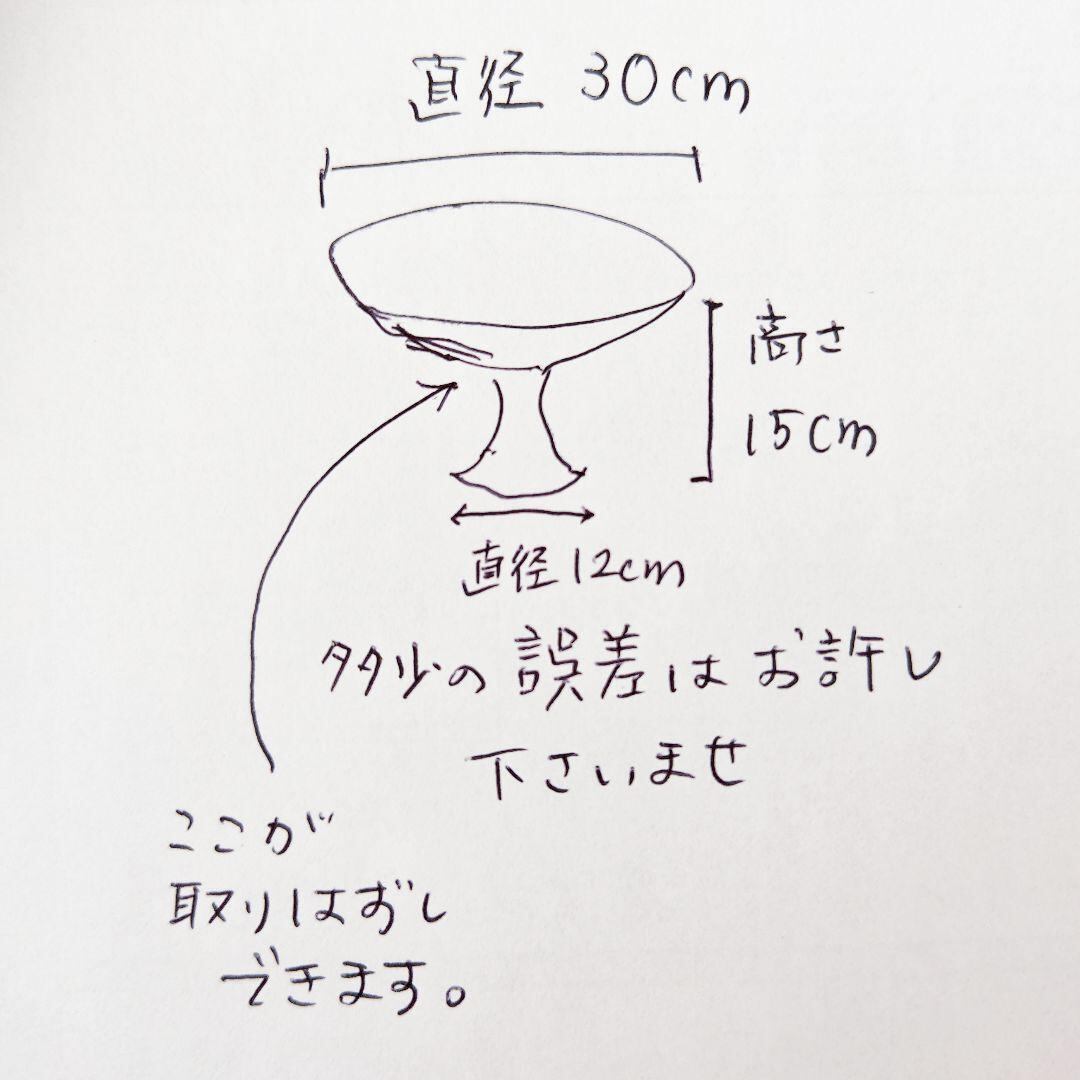 直径 30cm
高さ
15cm
直径12cm
多少の誤差はお許し
下さいませ
ここが
取りはずし
できます。